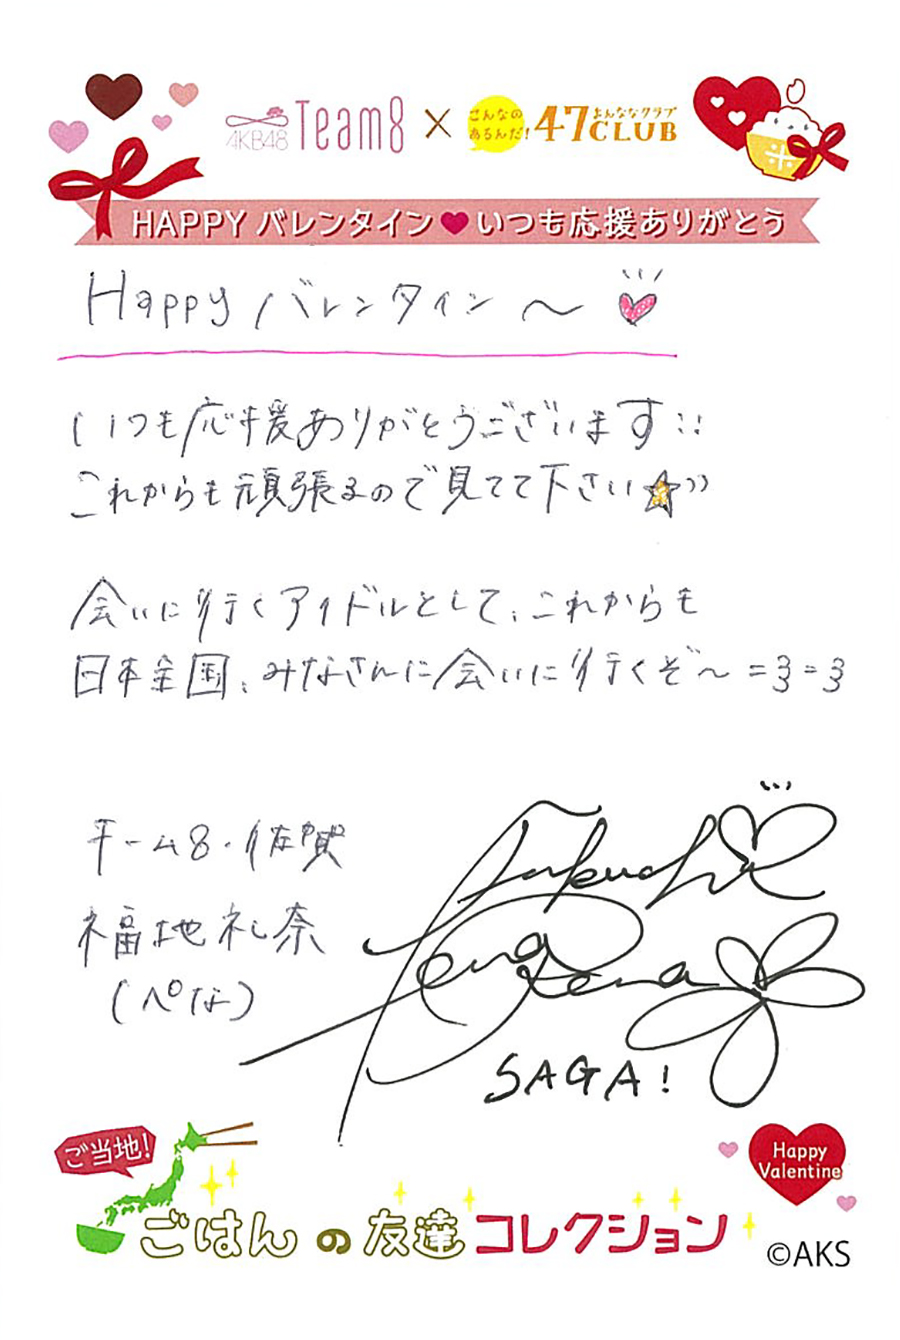 AKB48 Team8 × こんなのあるんだ! 47CLUB よんななクラブ
HAPPY バレンタイン♥いつも応援ありがとう
Happy バレンタイン〜♡
いつも応援ありがとうございます!!
これからも頑張るので見てて下さい☆))
会いに行くアイドルとして、これからも
日本全国、みなさんに会いに行くぞ〜=3=3
チーム8・佐賀
福地礼奈
(ぺな)
Fukuchi
Pena Rena
SAGA!
ご当地!
Happy
Valentine
ごはんの友達コレクション
©AKS